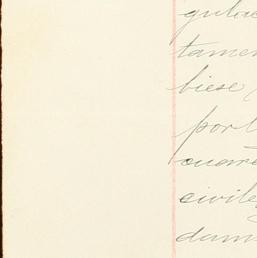 gulac
tamen
biese
port
cuare
civile
dam